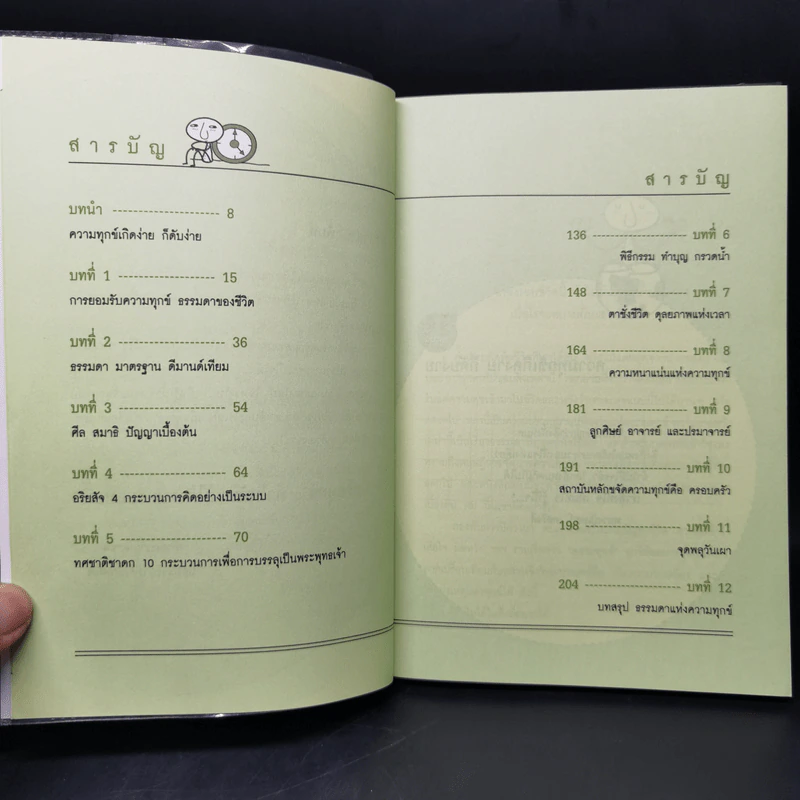 สารบัญ
บทนำ -------------------- 8
ความทุกข์เกิดง่าย ก็ดับง่าย
บทที่ 1 -------------------- 15
การยอมรับความทุกข์ ธรรมดาของชีวิต
บทที่ 2 -------------------- 36
ธรรมดา มาตรฐาน ดีมานด์เทียม
บทที่ 3 -------------------- 54
ศีล สมาธิ ปัญญาเบื้องต้น
บทที่ 4 -------------------- 64
อริยสัจ 4 กระบวนการคิดอย่างเป็นระบบ
บทที่ 5 -------------------- 70
ทศชาติชาดก 10 กระบวนการเพื่อการบรรลุเป็นพระพุทธเจ้า
สารบัญ
136 -------------------- บทที่ 6
พิธีกรรม ทำบุญ กรวดน้ำ
148 -------------------- บทที่ 7
ตาชั่งชีวิต ดุลยภาพแห่งเวลา
164 -------------------- บทที่ 8
ความหนาแน่นแห่งความทุกข์
181 -------------------- บทที่ 9
ลูกศิษย์ อาจารย์ และปรมาจารย์
191 -------------------- บทที่ 10
สถาบันหลักขจัดความทุกข์คือ ครอบครัว
198 -------------------- บทที่ 11
จุดพลุวันเผา
204 -------------------- บทที่ 12
บทสรุป ธรรมดาแห่งความทุกข์